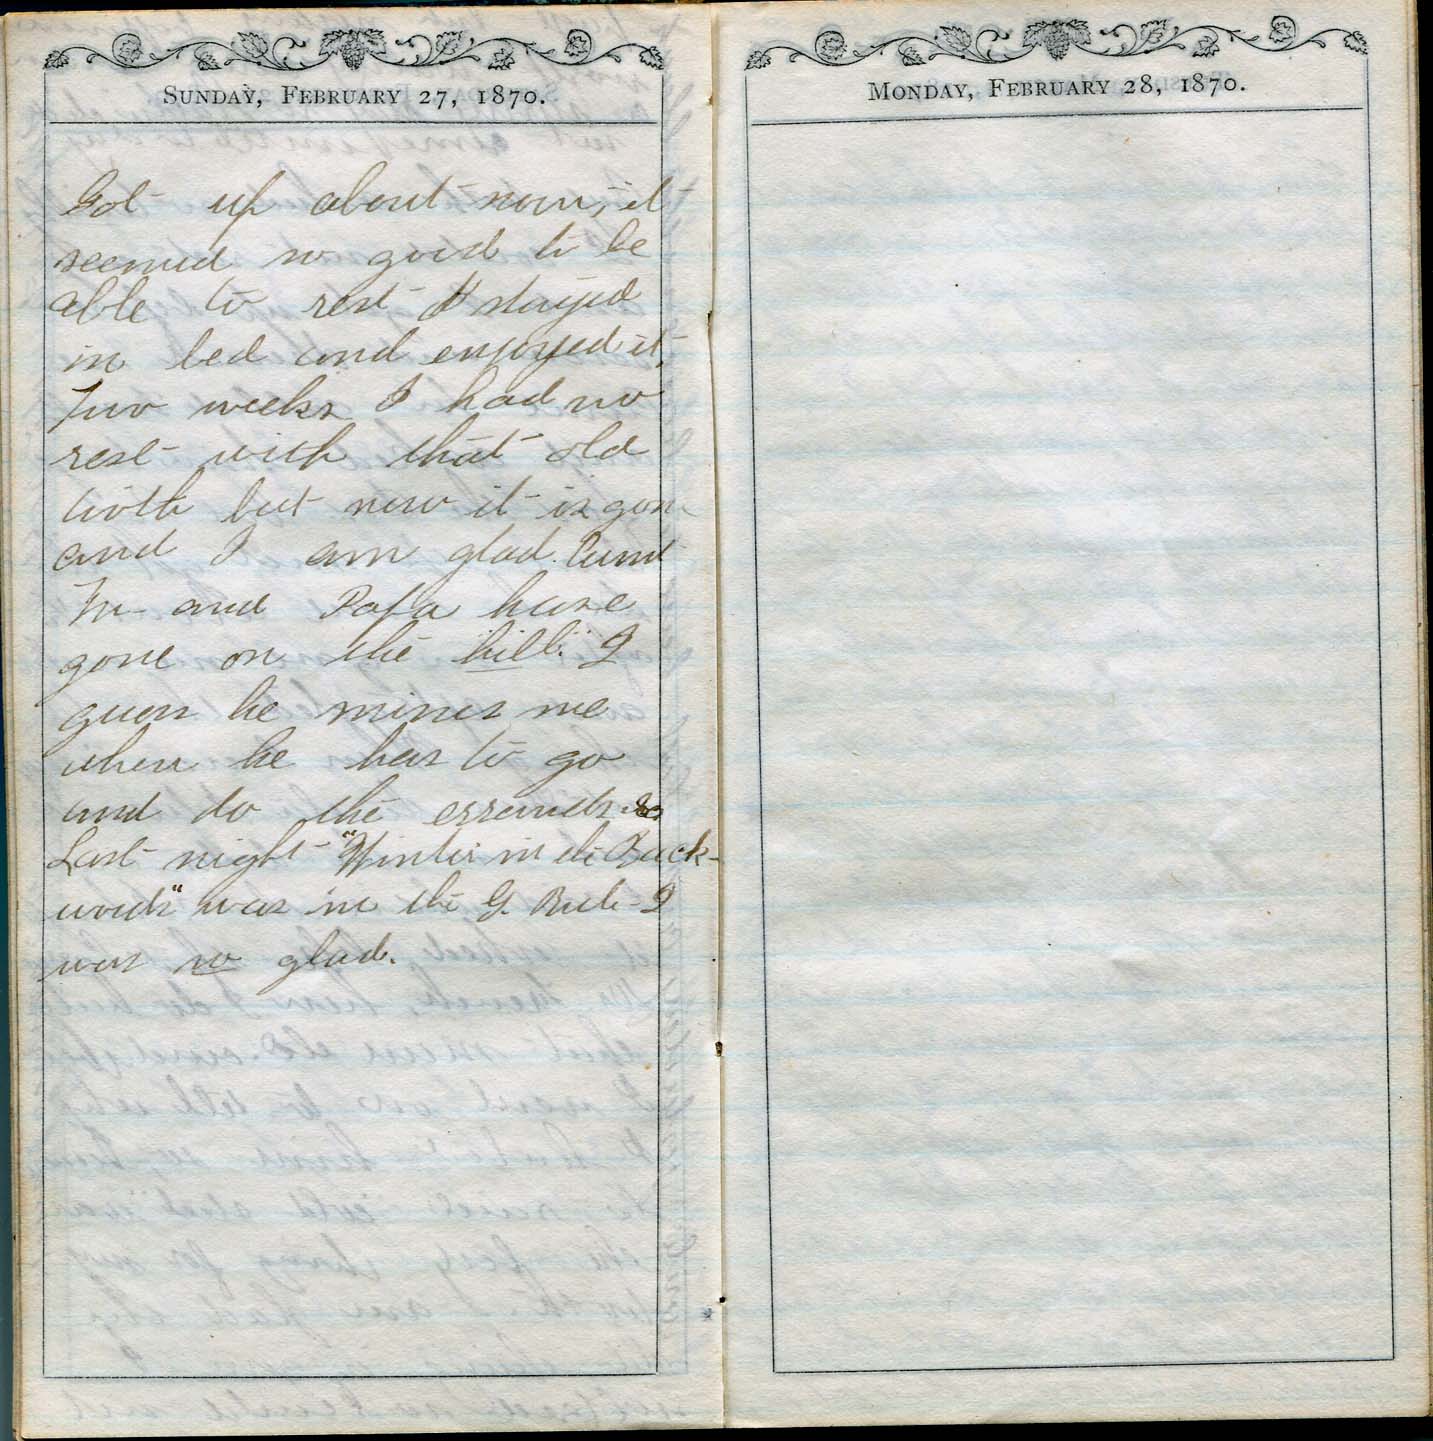 SUNDAY, FEBRUARY 27, 1870.
Got up about noon, it
seemed so good to be
able to rest I stayed
in bed and enjoyed it,
Two weeks I had no
rest with that old
tooth but now it is gon
and I am glad. Aunt
M and Papa have
gone on the "hill." I
guess he misses me
when he has to go
and do the errands
Last night "Winter in the Back-
woods" was in the G. Rule- I
was so glad.
MONDAY, FEBRUARY 28, 1870.